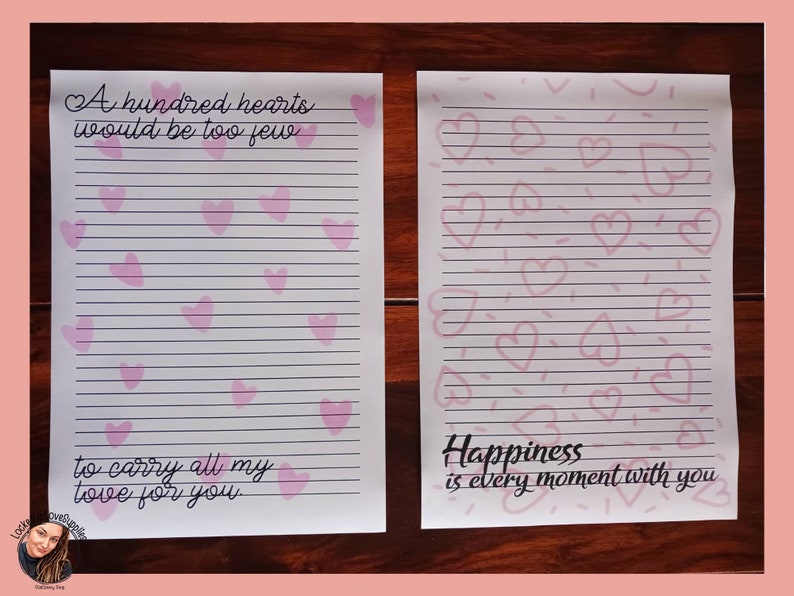 A hundred hearts
would be too few
to carry all my
love for you.
Happiness
is every moment with you
Stationery Shop